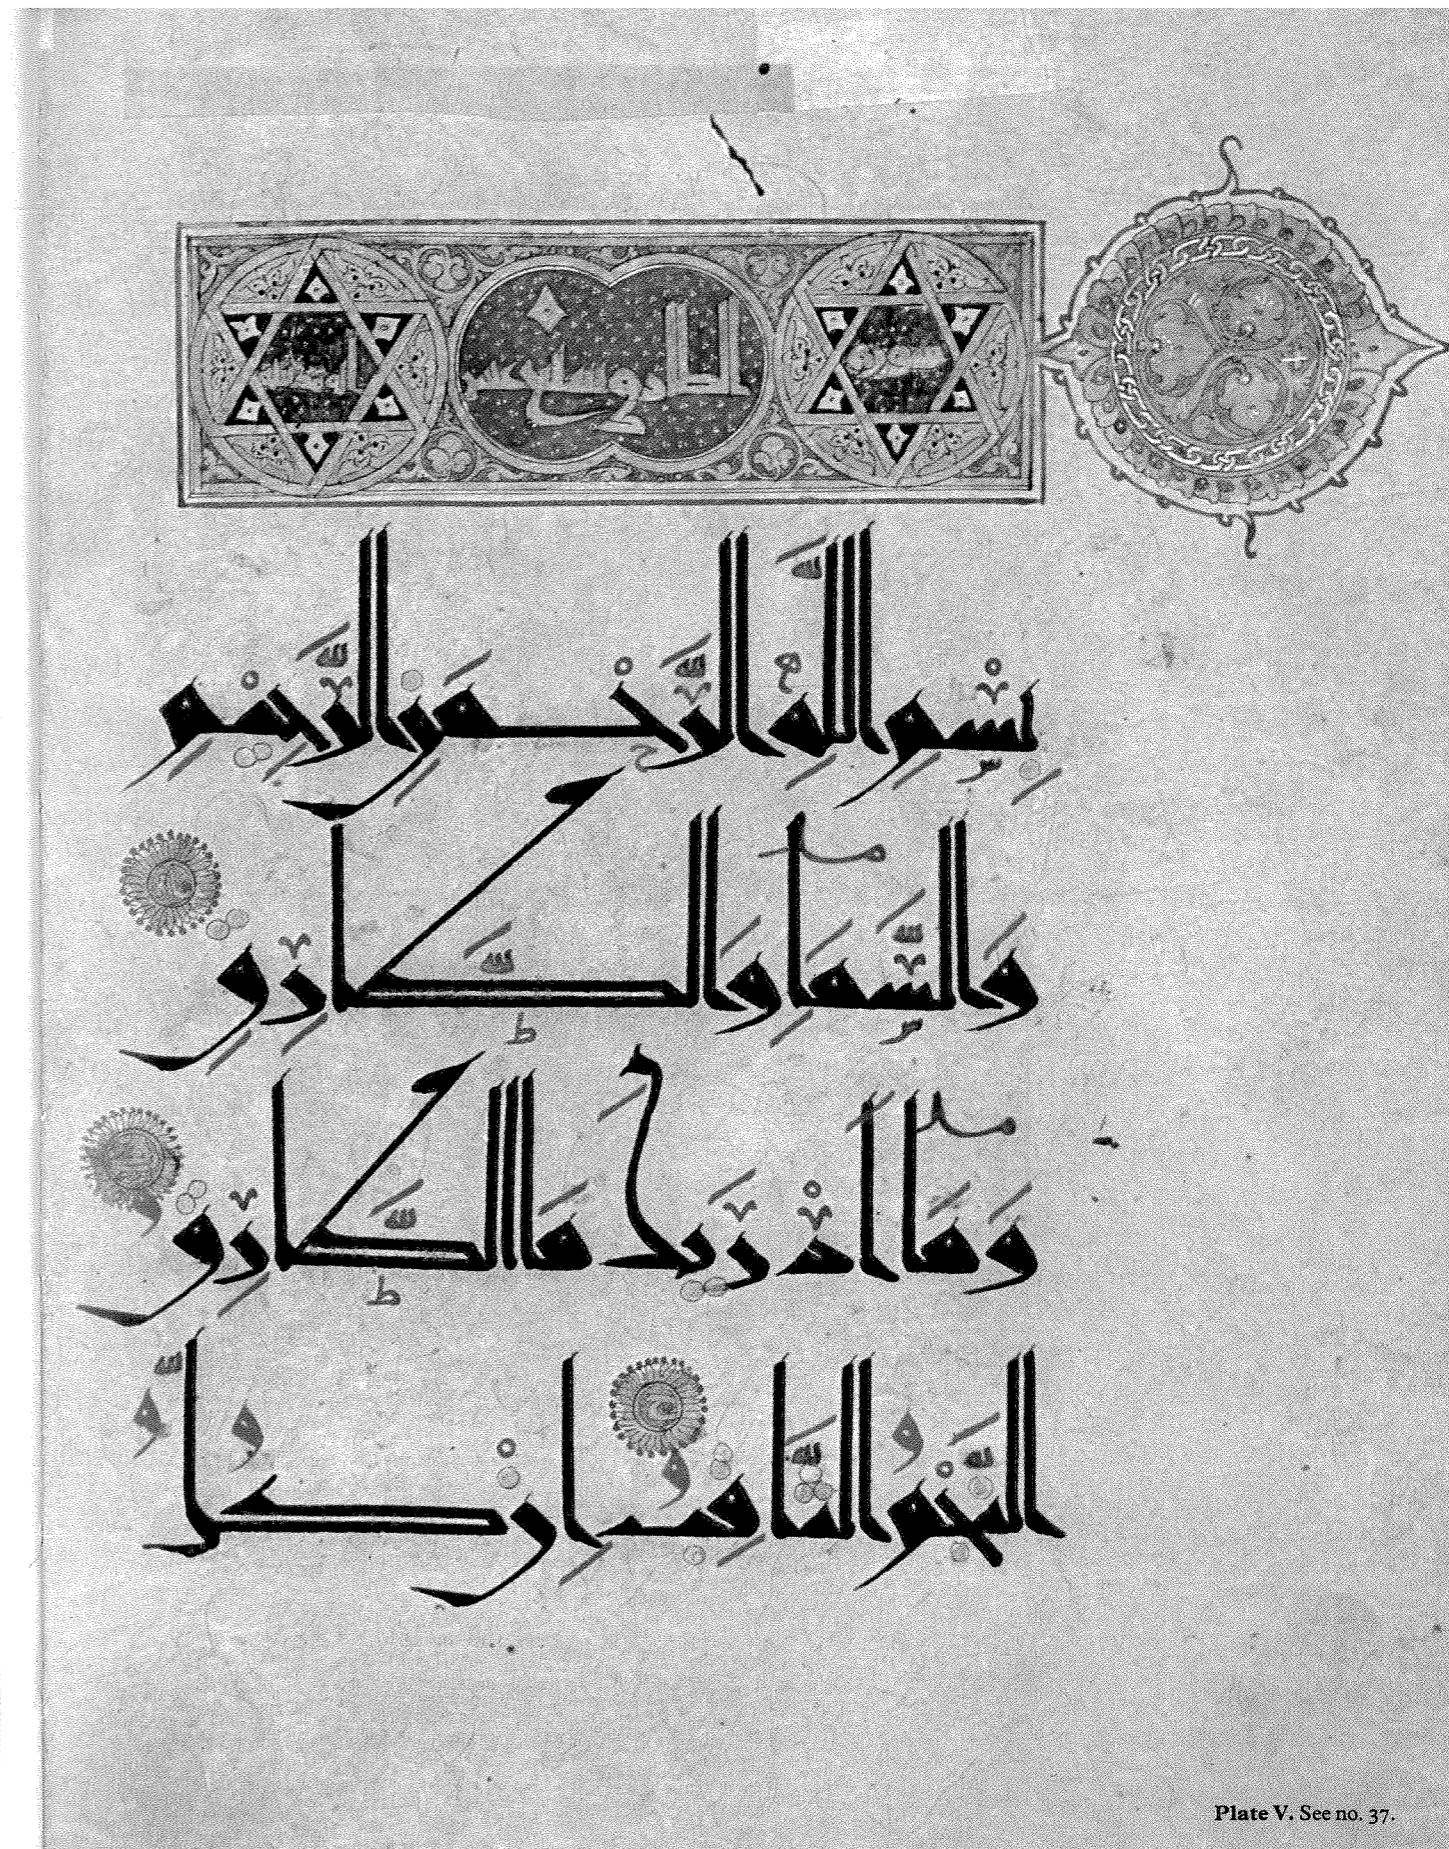 بِسْمِ اللَّهِ الرَّحْمَنِ الرَّحِيمِ
وَالسَّمَآءِ وَالطَّارِقِ
وَمَآ أَدْرَيكَ مَا الطَّارِقُ
النَّجْمُ الثَّاقِبُ إِنْ كُلُّ
Plate V. See no. 37.